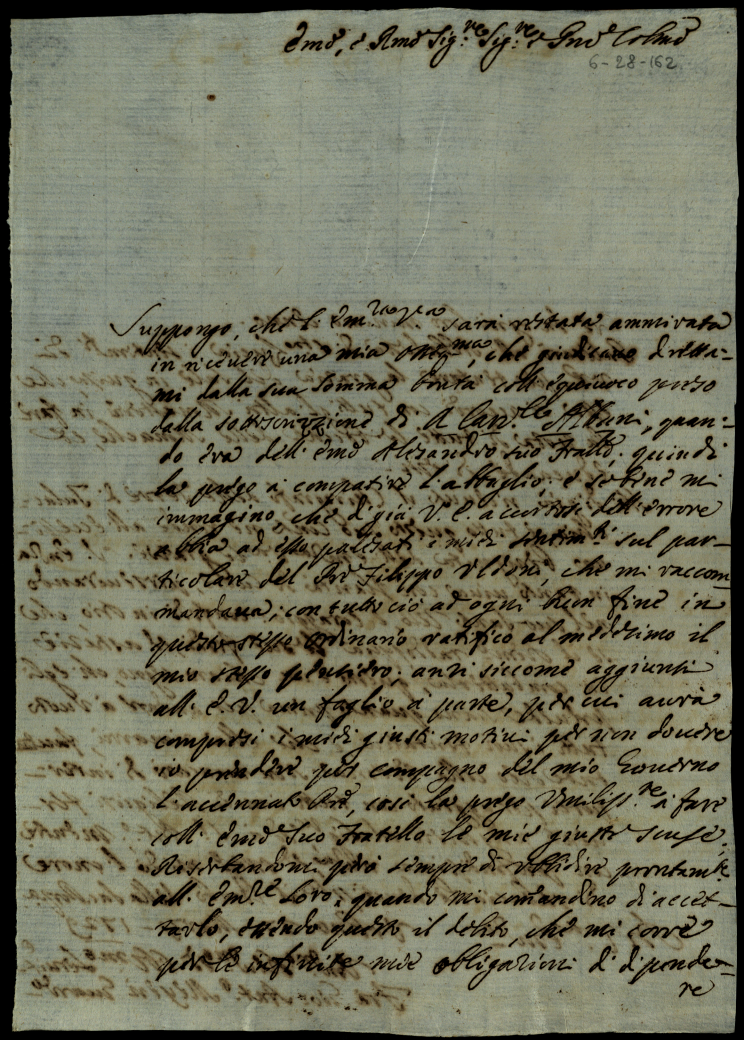 Emo, e Rmo Sig.re Sig.re e Pnê Colmo
6-28-162
Suppongo, che l'Em.za sarà restata ammirata
in ricevere una mia che giudicavo diretta-
mi dalla sua somma bontà coll'equivoco preso
dalla sottoscrizione di A Car.le Albani, quan-
do era dell'Emo Alesandro suo Fratello, quindi
la prego à compatire l'abbaglio; e sebene mi
immagino, che di già V. E. accortasi dell'errore
abbia ad esso palesati i miei sentim.ti sul par-
ticolare del Pre Filippo Uldoni, che mi raccom-
mandava; con tutto ciò ad ogni buon fine in
questo stesso ordinario ratifico al medesimo il
mio stesso pensiero; anzi siccome aggiunsi
all'E. V. un foglio à parte, per cui avrà
compresi i miei giusti motivi per non dovere
io prendere per compagno del mio Governo
l'accennato Pre, così la prego Umiliss.te à fare
coll'Emo Suo Fratello le mie giuste scuse,
Riserbandomi però sempre di ubbidire prontamte
all'Emze Loro, quando mi comandino di accet-
tarlo, essendo questo il debito, che mi corre
per le infinite mie obligazioni di dipende-
re